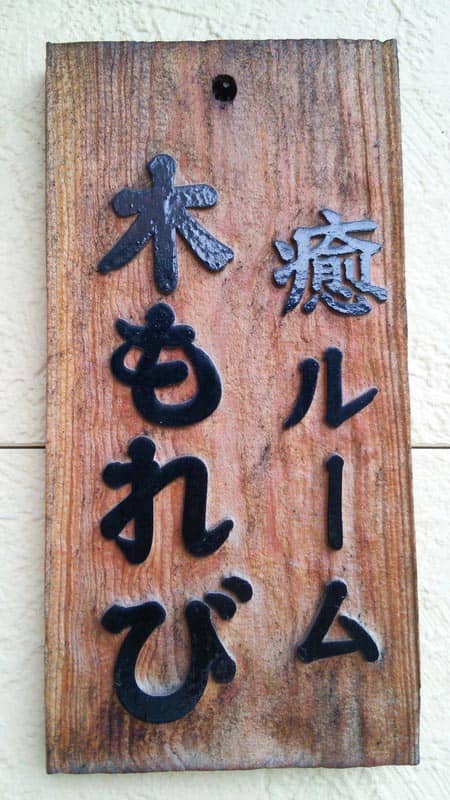 癒ルーム
木もれび